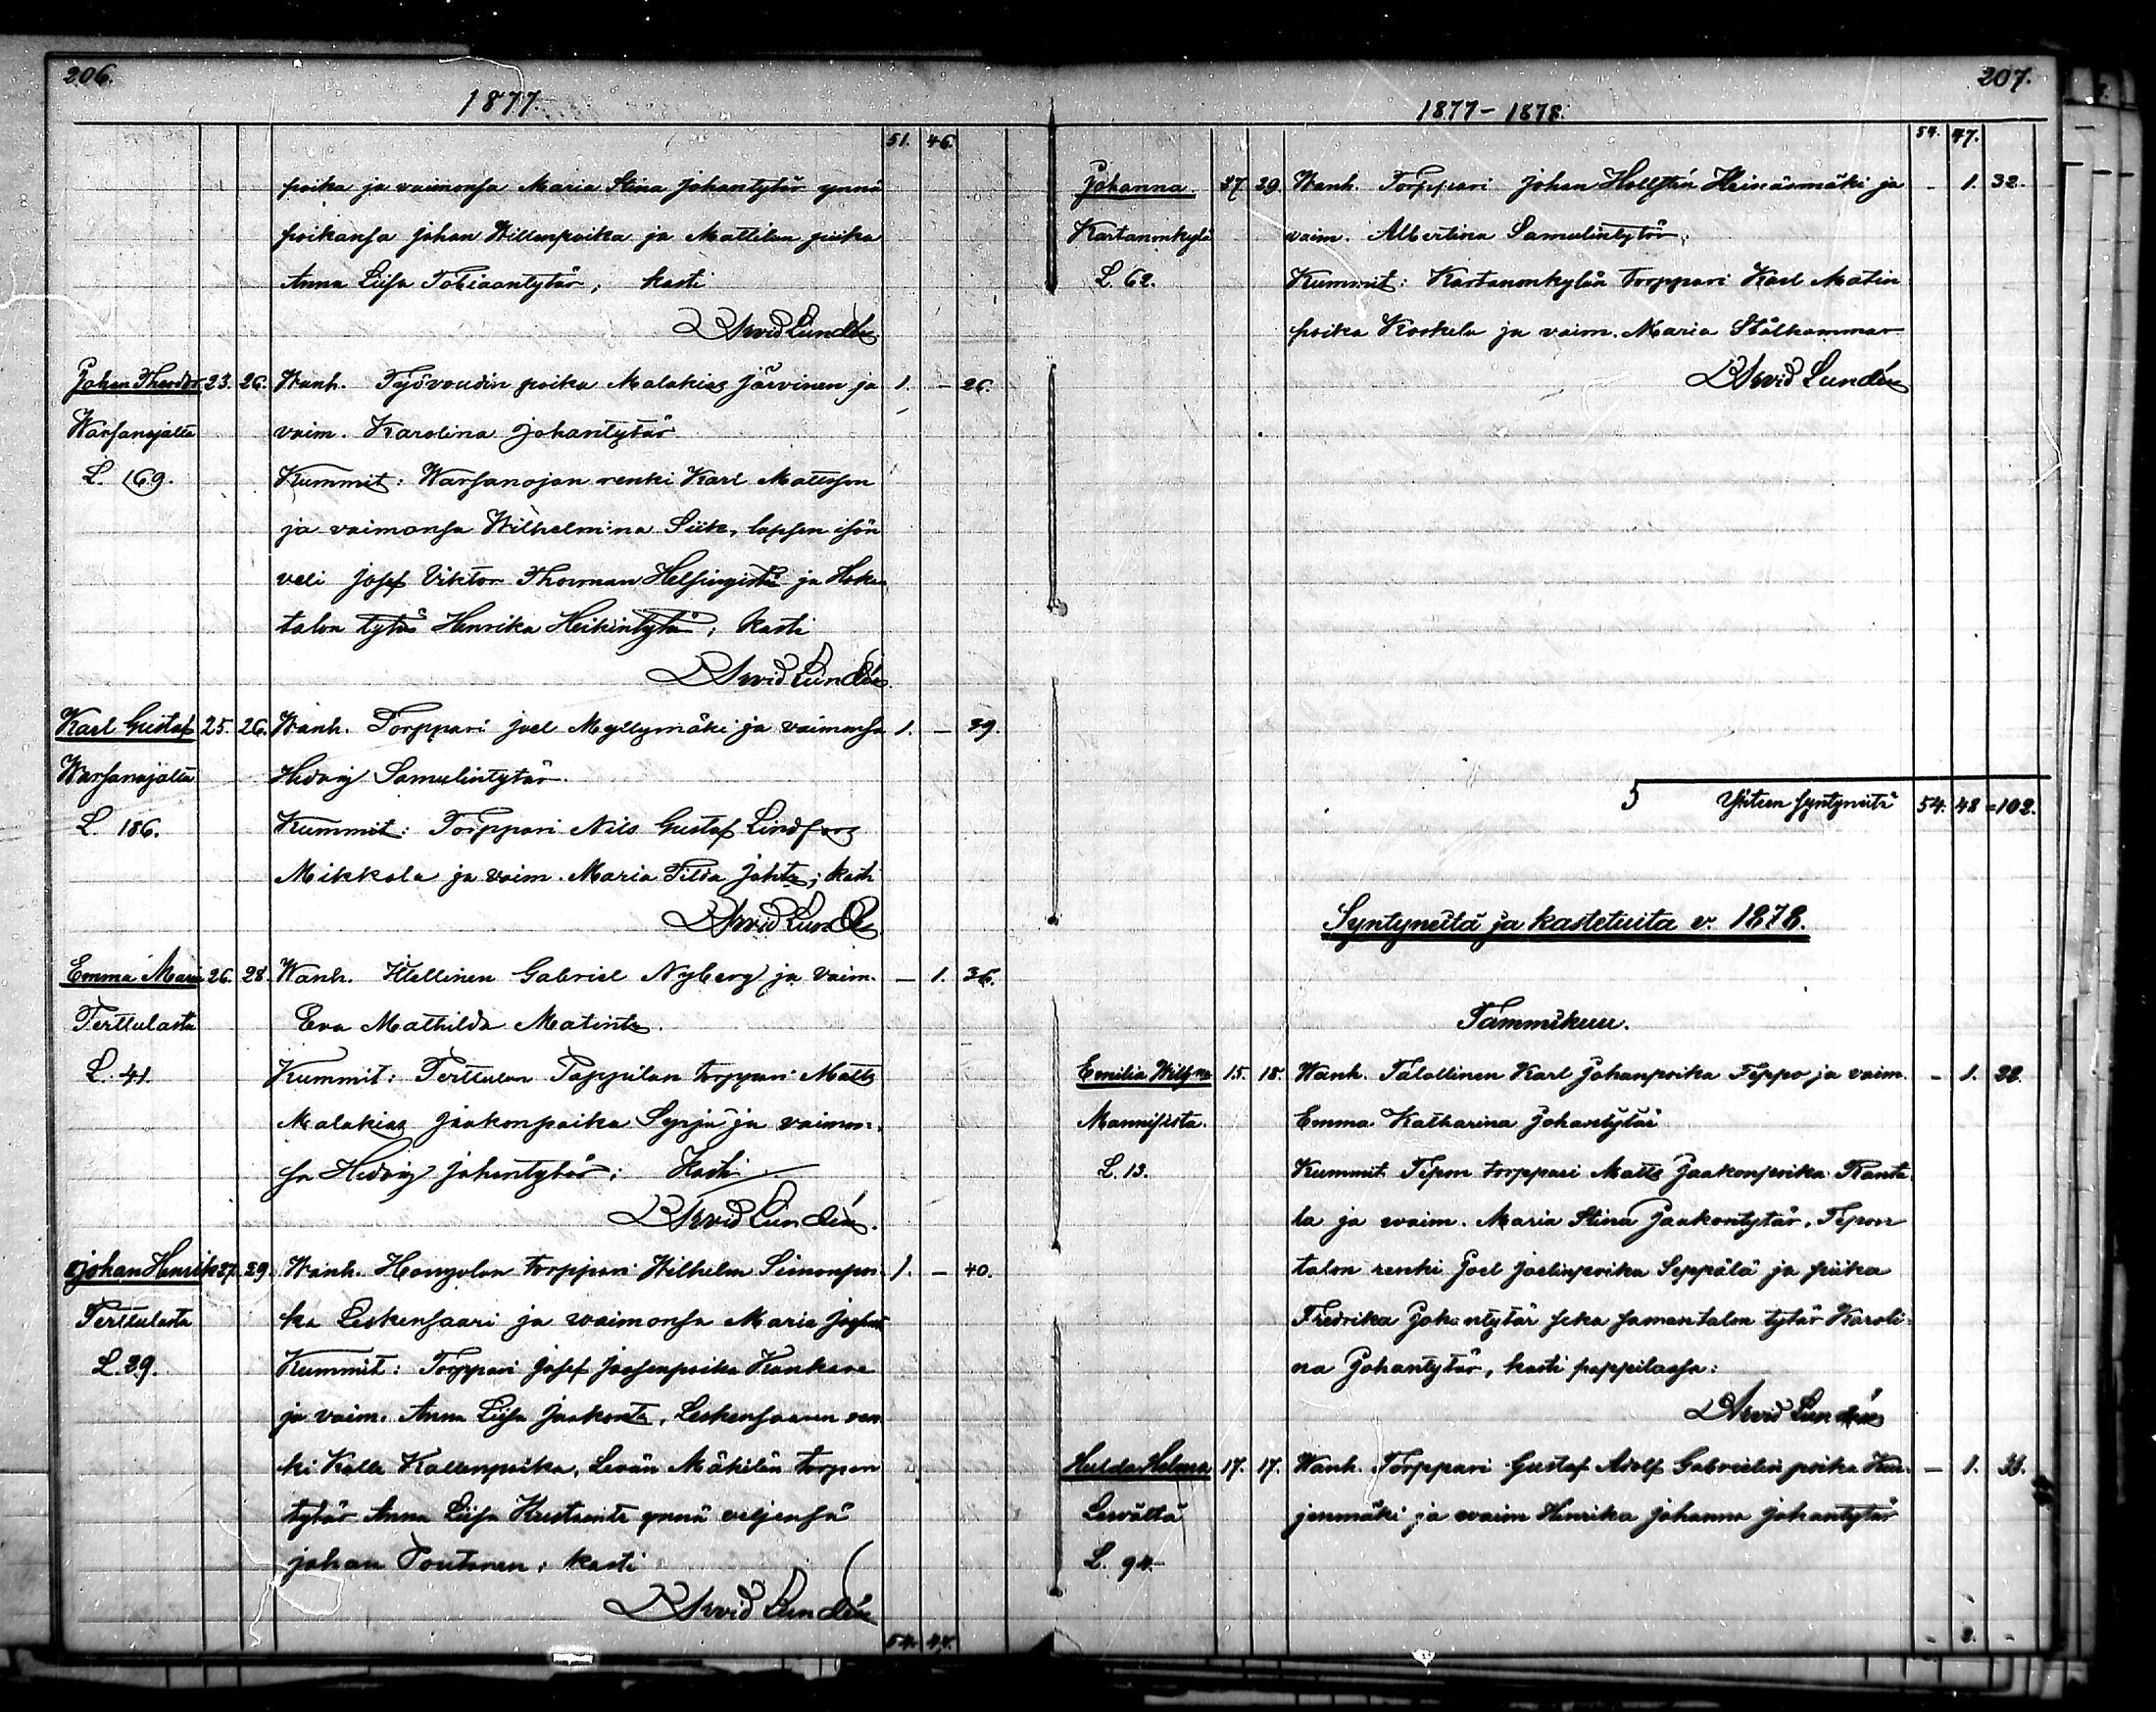 206.
1877.
51. 46.
poika ja vaimonsa Maria Stina Johantytär ynnä
poikansa Johan Willenpoika ja Mattilan piika
Anna Liisa Tobiaantytär; kasti
Arvid Lundén
Johan Theodor 23. 26. Wanh. Työvoudin poika Malakias Järvinen ja 1. – 26.
Warsanojalta vaim. Karolina Johantytär
L. 169. Kummit: Warsanojan renki Karl Mattsson
ja vaimonsa Wilhelmina Siik, lapsen isän
veli Josef Viktor Thorman Helsingistä ja
talon tytär Henrika Heikintytär; kasti
Arvid Lundén
Karl Gustaf 25. 26. Wanh. Torppari Joel Myllymäki ja vaimonsa 1. – 39.
Warsanojalta Hedvig Samulintytär.
L. 186. Kummit: Torppari Nils Gustaf Lindfors
Mikkola ja vaim. Maria Tilda Johts; kasti
Arvid Lundén
Emma Maria 26. 28. Wanh. Itellinen Gabriel Nyberg ja vaim. – 1. 36.
Terttulasta Eva Mathilda Matints.
L. 41. Kummit: Terttulan Pappilan torppari Matts
Malakias Jaakonpoika Syrjä ja vaimon-
sa Hedvig Johantytär; Kasti
Arvid Lundén.
Johan Henrik 27. 29. Wanh. Hongolan torppari Wilhelm Simonpoi- 1. – 40.
Terttulasta ka Leskensaari ja waimonsa Maria
L. 29. Kummit: Torppari Josef Joosenpoika Kankare
ja vaim. Anna Liisa Jaakonts, Leskensaaren ren-
ki Kalle Kallenpoika, Levän Mäkilän torpan
tytär Anna Liisa Kustaants ynnä veljensä
Johan Toutonen; kasti
Arvid Lundén
54. 47.
207.
1877–1878.
54. 47.
Johanna 27. 29. Wanh. Torppari Johan Hollstén Heinäsmäki ja – 1. 32.
Kartanonkylä vaim. Albertina Samulintytär.
L. 62. Kummit: Kartanonkylän torppari Karl Matin
poika Koskela ja vaim. Maria Stålhammar
Arvid Lundén
Yhteen syntyneitä 54. 48 = 102.
Syntyneitä ja kastetuita v. 1878.
Tammikuu.
Emilia Wilh:na 15. 18. Wanh. Talollinen Karl Johanpoika Teppo ja vaim. – 1. 22.
Mannisista. Emma Katharina Johantytär
L. 13. Kummit Tepon torppari Matts Jaakonpoika Ranta-
la ja vaim. Maria Stina Jaakontytär, Tepon
talon renki Joel Joelinpoika Seppälä ja piika
Fredrika Johantytär seka saman talon tytär Karoli-
na Johantytär, kasti pappilassa:
Arvid Lundén
Hulda Helena 17. 17. Wanh. Torppari Gustaf Adolf Gabrielin poika Kur- – 1. 33.
Levältä jenmäki ja waim Henrika Johanna Johantytär
L. 94.
– 2. –